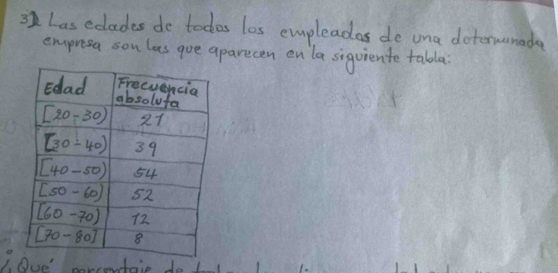 3) Las edades de todos los empleados de una determinada
empresa son las que aparecen en la siguiente tabla:
Edad Frecuencia absoluta
[20-30) 21
[30-40) 39
[40-50) 54
[50-60) 52
[60-70) 12
[70-80] 8
¿Qué porcentaje de